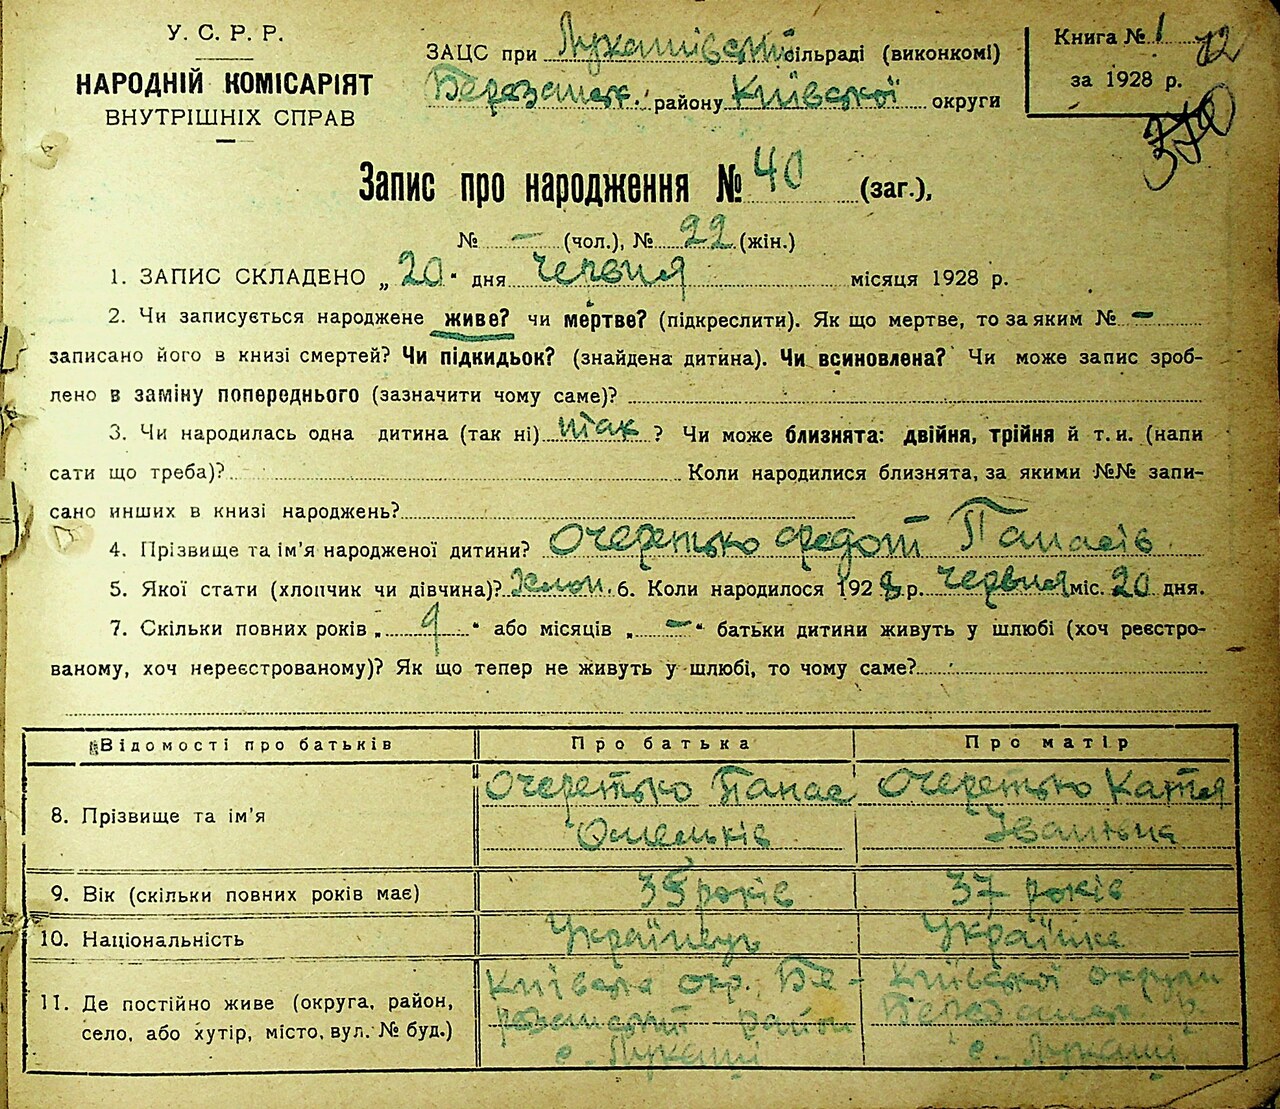 У. С. Р. Р.
НАРОДНІЙ КОМІСАРІЯТ
ВНУТРІШНІХ СПРАВ
ЗАЦС при Лукашівській сільраді (виконкомі)
Березанськ. району Київської округи
Книга № 1
за 1928 р.
12
370
Запис про народження № 40 (заг.),
№ — (чол.), № 22 (жін.)
1. ЗАПИС СКЛАДЕНО „20" дня червня місяця 1928 р.
2. Чи записується народжене живе? чи мертве? (підкреслити). Як що мертве, то за яким № —
записано його в книзі смертей? Чи підкидьок? (знайдена дитина). Чи всиновлена? Чи може запис зроб-
лено в заміну попереднього (зазначити чому саме)?
3. Чи народилась одна дитина (так ні) так ? Чи може близнята: двійня, трійня й т. и. (напи
сати що треба)? Коли народилися близнята, за якими №№ запи-
сано инших в книзі народжень?
4. Прізвище та ім'я народженої дитини? Очеретько Федот Панасів
5. Якої стати (хлопчик чи дівчина)? Хлоп. 6. Коли народилося 1928 р. червня міс. 20 дня.
7. Скільки повних років „ 9 " або місяців „ — " батьки дитини живуть у шлюбі (хоч реєстро-
ваному, хоч нереєстрованому)? Як що тепер не живуть у шлюбі, то чому саме?
Відомості про батьків Про батька Про матір
8. Прізвище та ім'я Очеретько Панас Омельків Очеретько Катя Іванівна
9. Вік (скільки повних років має) 35 років 37 років
10. Національність Українець Українка
11. Де постійно живе (округа, район,
село, або хутір, місто, вул. № буд.)
Київська окр. Бе-
розанський район
с. Лукаші
Київської округи
Березанськ р.
с. Лукаші